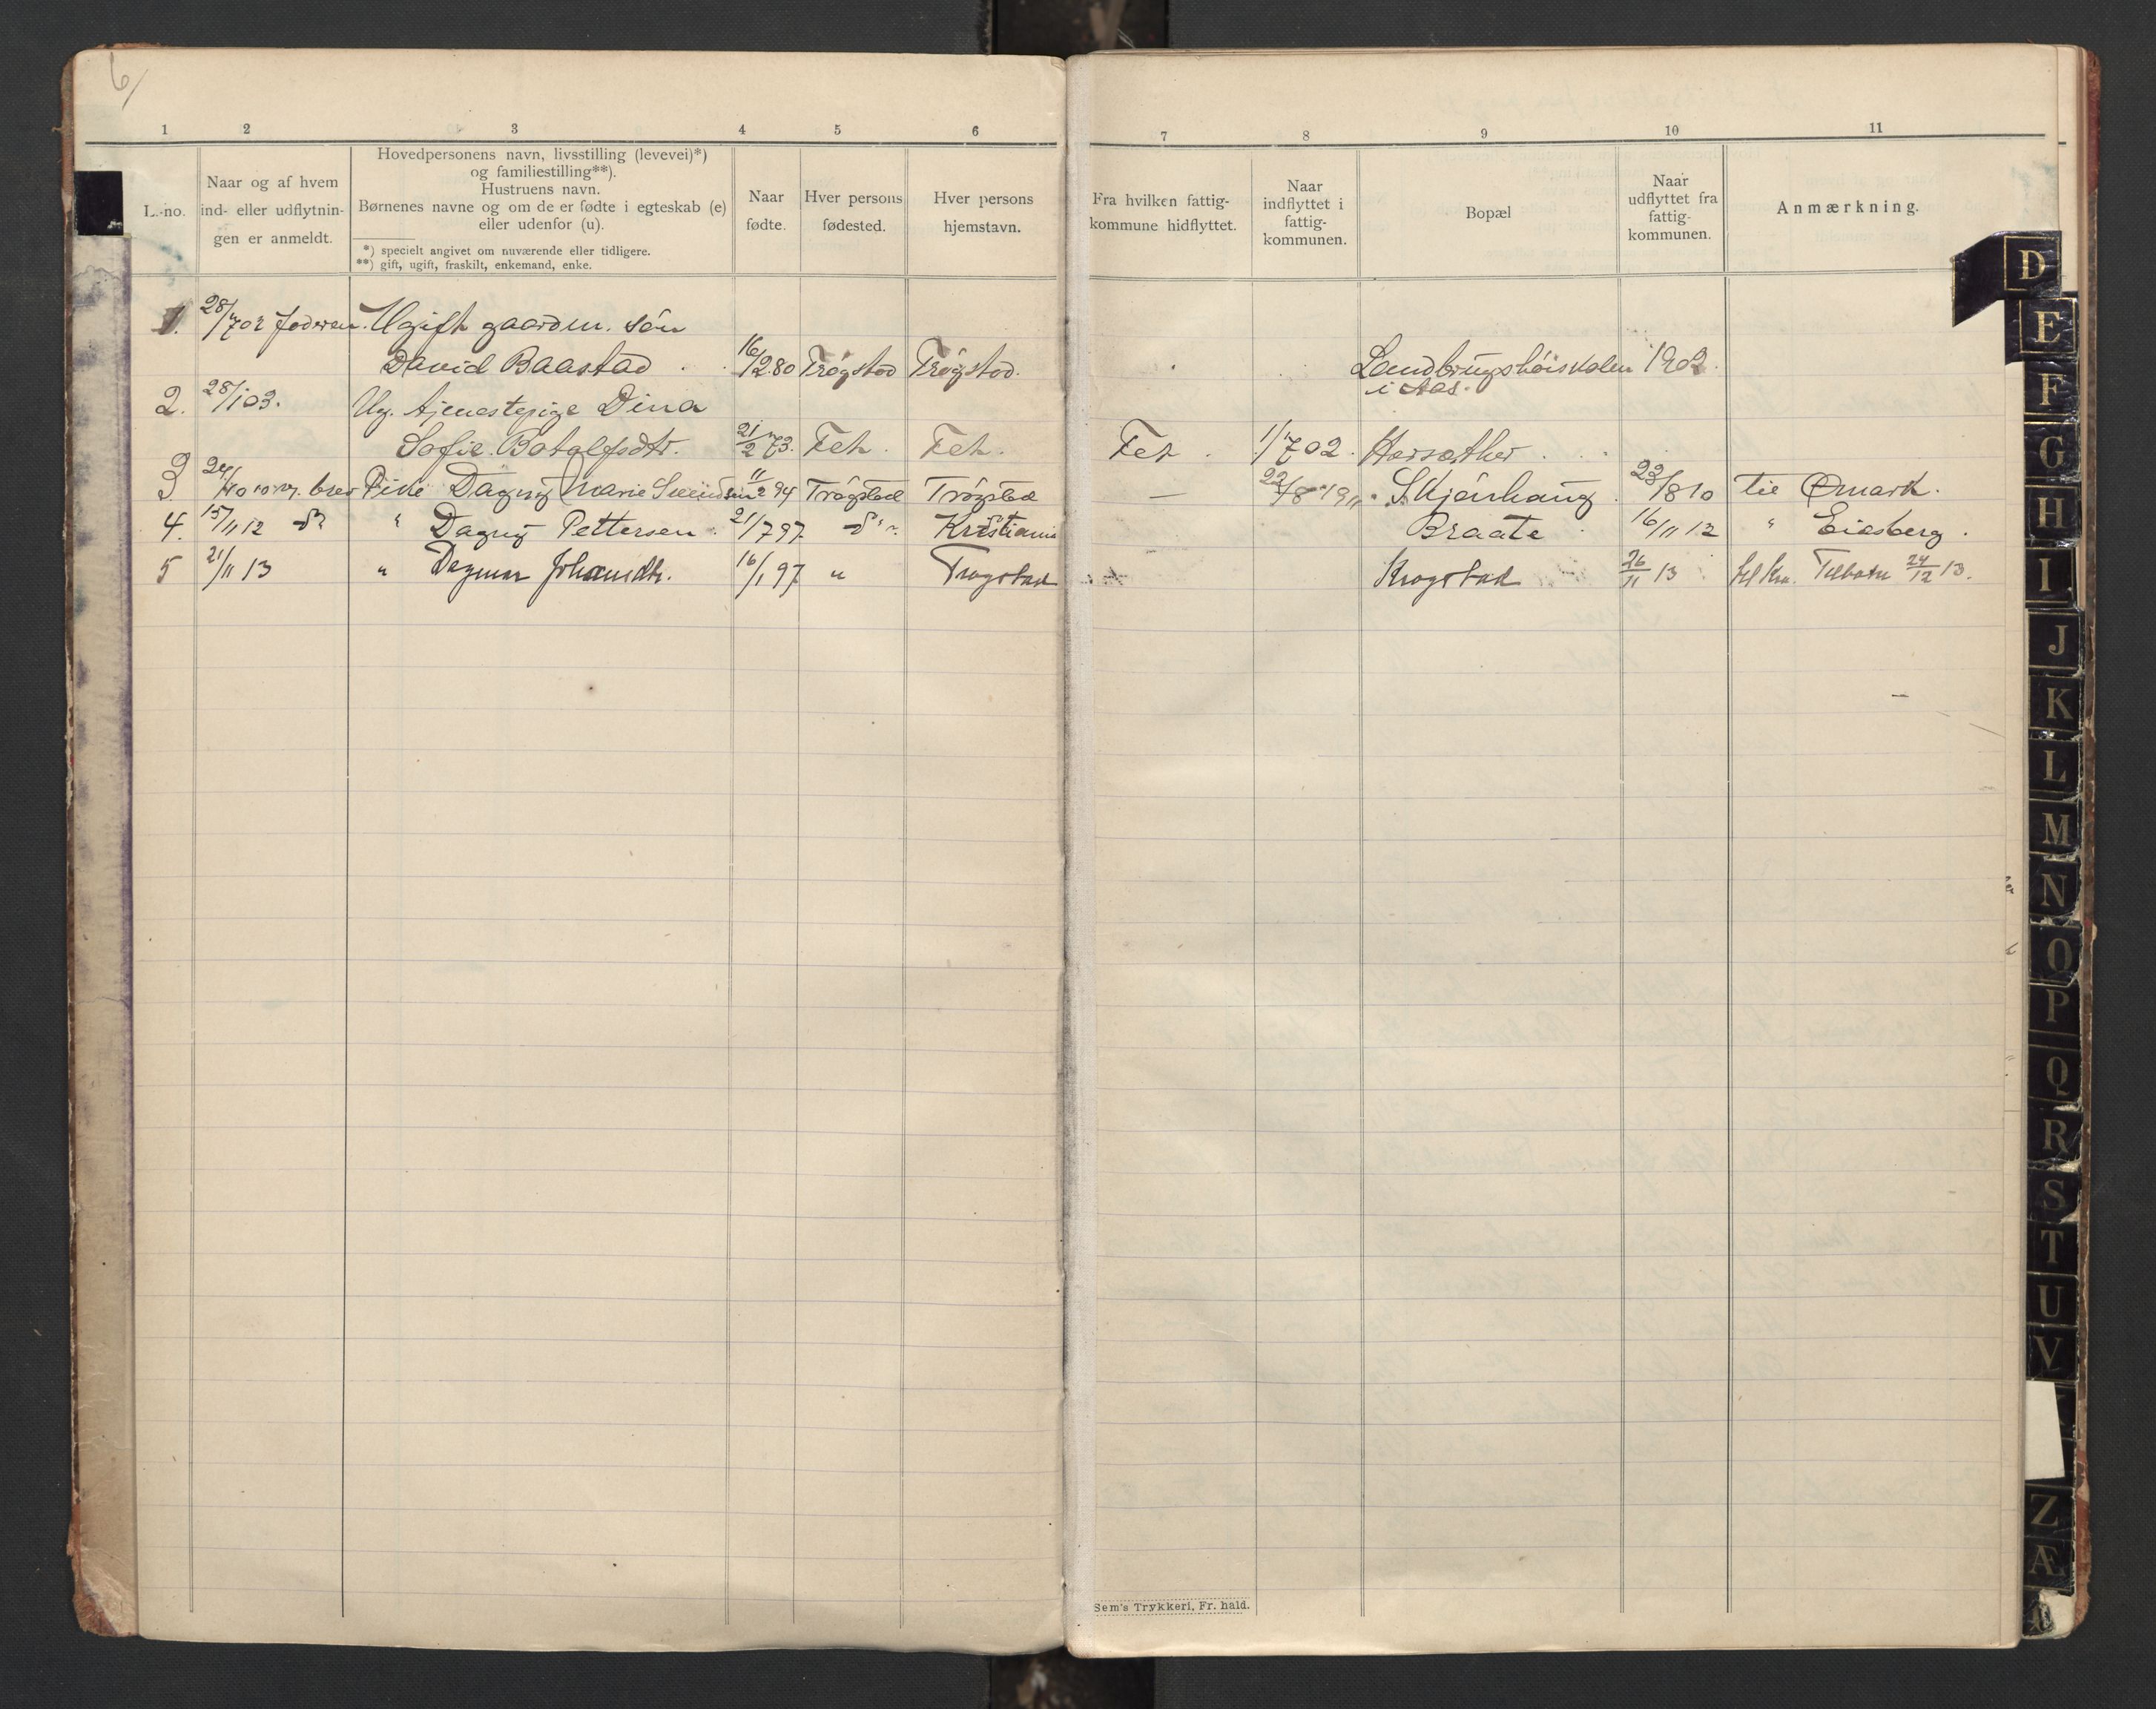 6/
1 2 3 4 5 6
L.-no.
Naar og af hvem
ind- eller udflytnin-
gen er anmeldt.
Hovedpersonens navn, livsstilling (levevei)*)
og familiestilling**).
Hustruens navn.
Børnenes navne og om de er fødte i egteskab (e)
eller udenfor (u).
*) specielt angivet om nuværende eller tidligere.
**) gift, ugift, fraskilt, enkemand, enke.
Naar
fødte.
Hver persons
fødested.
Hver persons
hjemstavn.
7 8 9 10 11
Fra hvilken fattig-
kommune hidflyttet.
Naar
indflyttet i
fattig-
kommunen.
Bopæl
Naar
udflyttet fra
fattig-
kommunen.
Anmærkning.
1. 28/7 02 Ugift gaardm. søn
David Baastad 16/2 80 Trøgstad Trøgstad. Landbrugshøiskolen 1902.
i Aas.
2. 28/1 03. Ug. tjenestepige Dina
Sofie 21/2 73. Fet. Fet. Fet. 1/7 02. Harsæther
3 brev Pike Dagny Marie 11/2 94 Trøgstad Trøgstad — Skjønhaug 23/8 10 til Ømark.
4. 15/11 12 do " Dagny Pettersen 21/7 97. do Kristiania Braate 16/11 12 " Eidsberg.
5 21/11 13 " Dagmar Johansdtr. 16/1 97 " Trøgstad Krogstad 26/11 13 til Kra. 24/12 13.
Sem's Trykkeri, Fr. hald.
D
E
F
G
H
I
J
K
L
M
N
O
P
Q
R
S
T
U
V
Z
Æ